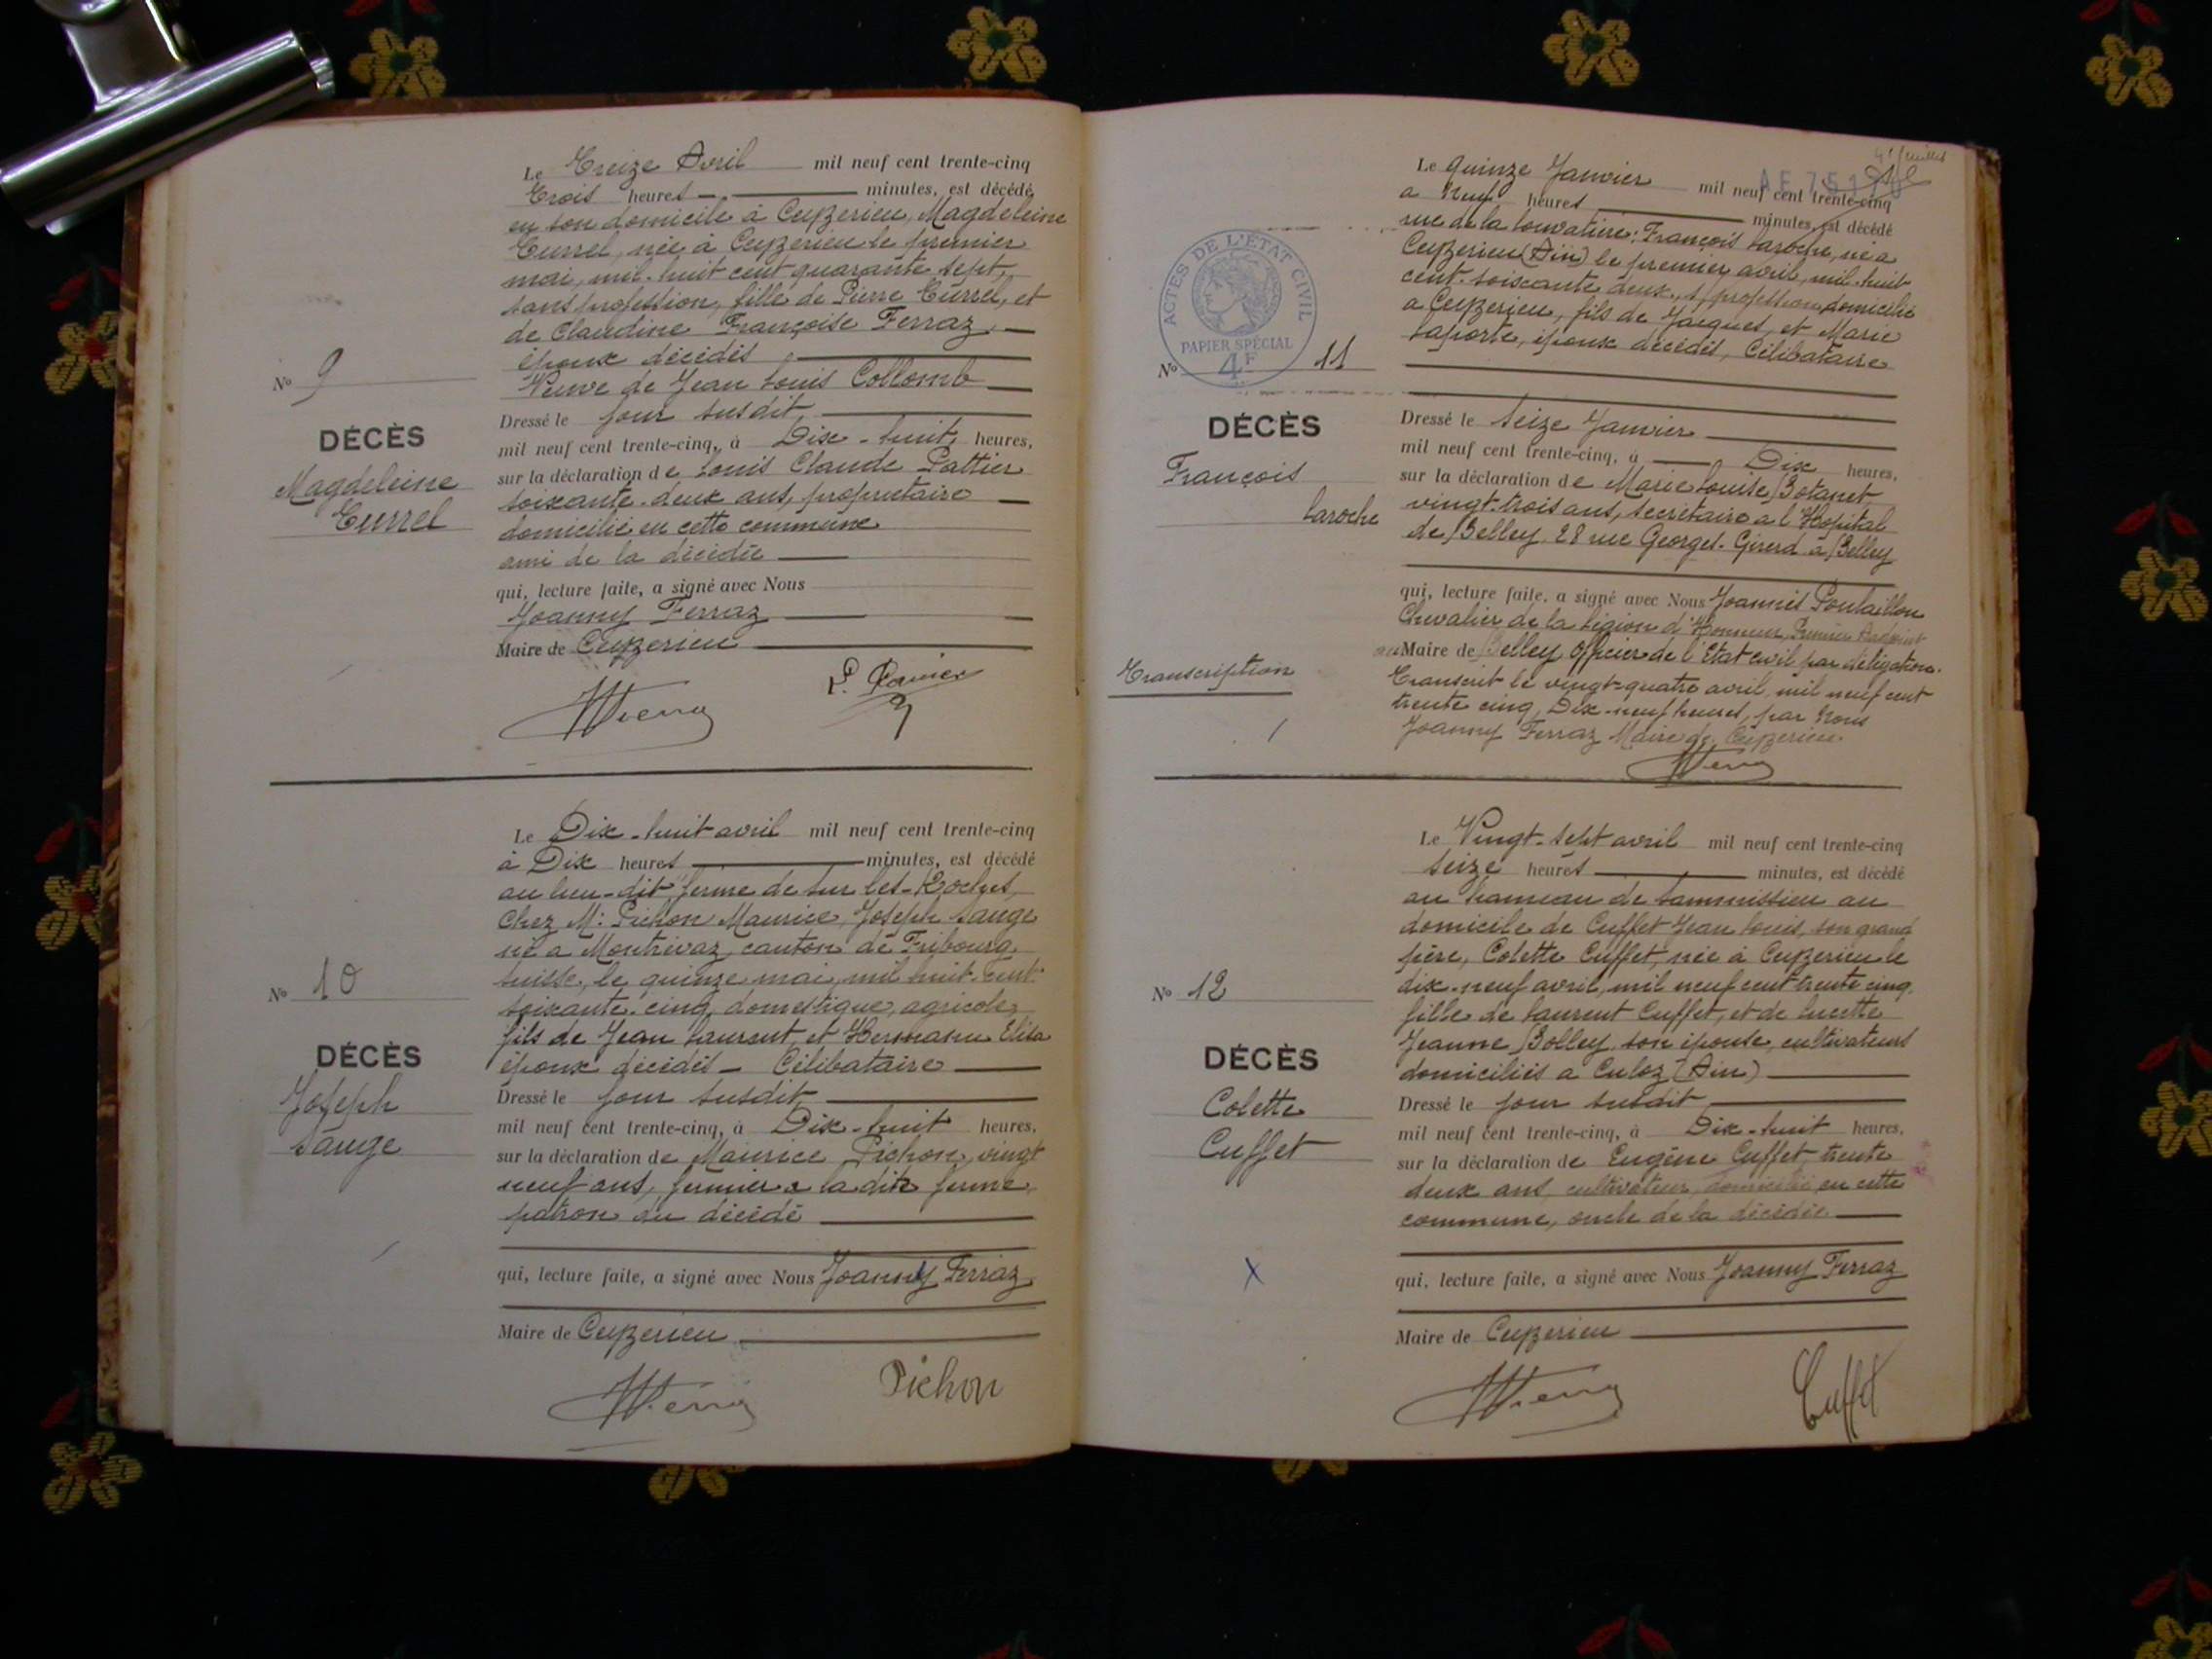 Le Treize Avril mil neuf cent trente-cinq
Trois heures minutes, est décédé
en son domicile à Ceyzerieu, Magdeleine
Currel, née à Ceyzerieu le premier
mai, mil huit cent quarante sept,
sans profession, fille de Pierre Currel, et
de Claudine Françoise Ferraz,
époux décédés
Veuve de Jean Louis Collomb
Nº 9
DÉCÈS
Magdeleine
Currel
Dressé le jour susdit
mil neuf cent trente-cinq, à Dix-huit heures,
sur la déclaration de Louis Claude
soixante-deux ans, propriétaire
domicilié en cette commune
ami de la décédée
qui, lecture faite, a signé avec Nous
Joanny Ferraz
Maire de Ceyzerieu
Le Dix-huit avril mil neuf cent trente-cinq
à Dix heures minutes, est décédé
au lieu-dit "ferme de sur les-Roches,
chez Mr Pichon Maurice, Joseph Sauge
né a Montrivaz, canton de Fribourg
Suisse, le quinze mai, mil huit-cent
soixante-cinq, domestique, agricole,
fils de Jean Laurent, et Hermann Elisa
époux décédés - Célibataire
Nº 10
DÉCÈS
Joseph
Sauge
Dressé le jour susdit
mil neuf cent trente-cinq, à Dix-huit heures,
sur la déclaration de Maurice Pichon, vingt
neuf ans, fermier a la dite ferme,
patron du décédé
qui, lecture faite, a signé avec Nous Joanny Ferraz
Maire de Ceyzerieu
Pichon
4e feuillet
AE
Le quinze Janvier mil neuf cent trente-cinq
a Neuf heures minutes, est décédé
rue de la Louvatière: François Laroche, né a
Ceyzerieu (Ain) le premier avril, mil-huit
cent-soixante deux, s, profession domicilié
a Ceyzerieu, fils de Jacques, et Marie
Laporte, époux décédés, Célibataire
ACTES DE L'ÉTAT CIVIL
PAPIER SPÉCIAL
4F
Nº 11
DÉCÈS
François
Laroche
Dressé le Seize Janvier
mil neuf cent trente-cinq, à Dix heures,
sur la déclaration de Marie Louise Botanet
vingt-trois ans, secrétaire a l'Hopital
de Belley, 28 rue Georges-Girerd a Belley
qui, lecture faite, a signé avec Nous Joannès Poulaillon
Chevalier de la Légion d'Honneur, Premier Adjoint
au Maire de Belley, Officier de l'Etat civil par délégation.
Transcription
Transcrit le vingt-quatre avril, mil neuf cent
trente cinq, Dix-neuf heures, par Nous
Joanny Ferraz Maire de Ceyzerieu.
Le Vingt-sept avril mil neuf cent trente-cinq
seize heures minutes, est décédé
au hameau de Lammissieu au
domicile de Cuffet Jean Louis, son grand
père, Colette Cuffet, née à Ceyzerieu le
dix-neuf avril, mil neuf cent trente cinq,
fille de Laurent Cuffet, et de Lucette
Jeanne Bolley, son épouse, cultivateurs
domiciliés a Culoz (Ain)
Nº 12
DÉCÈS
Colette
Cuffet
Dressé le jour susdit
mil neuf cent trente-cinq, à Dix-huit heures,
sur la déclaration de Eugène Cuffet, trente
deux ans, cultivateur, domicilié en cette
commune, oncle de la décédée
qui, lecture faite, a signé avec Nous Joanny Ferraz
Maire de Ceyzerieu
Cuffet